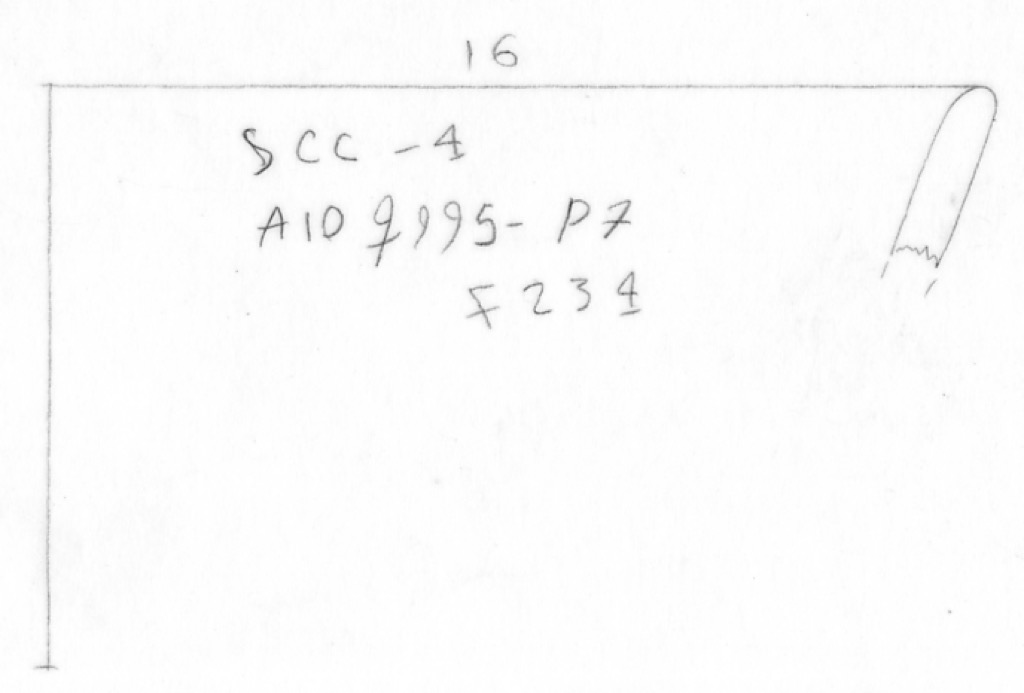 16
SCC-4
A10 9995-P7
F234